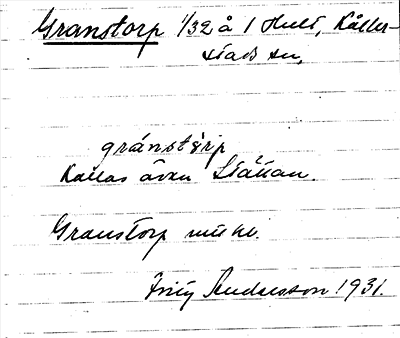 Granstorp 1/32 å 1 Hult, Kåller-
stads sn,
gránstórp
Kallas även Stättan.
Granstorp
Fritz Andersson 1931.